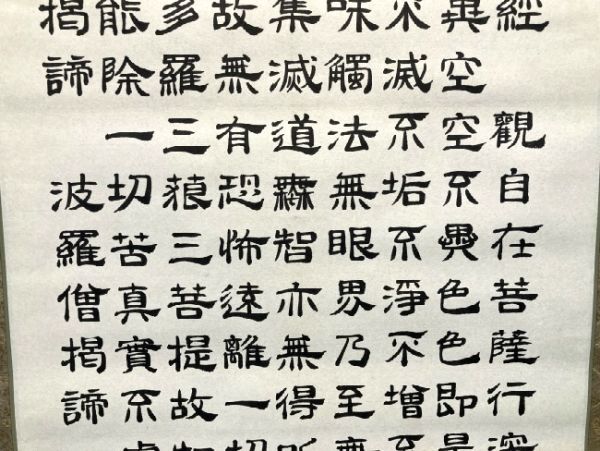 經 觀自在菩薩行深
異空空不異色色即是
不滅不垢不淨不增不
味觸法無眼界乃至無
集滅道無智亦無得所
故無有恐怖遠離一切
多羅三藐三菩提故知
能除一切苦真實不虛
揭諦 波羅僧揭諦